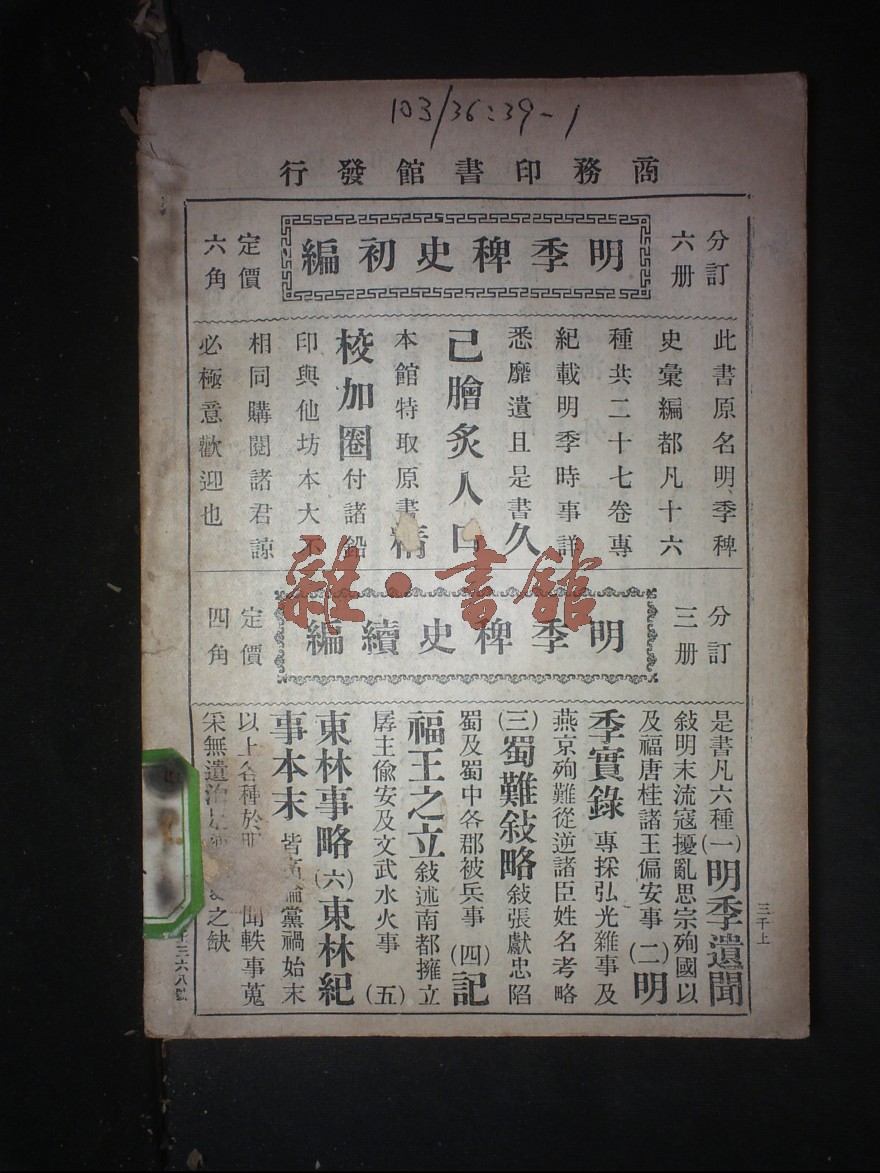 103/36:39-1
商務印書館發行
分訂
六册
明季稗史初編
定價
六角
此書原名明季稗
史彙編都凡十六
種共二十七卷專
紀載明季時事詳
悉靡遺且是書久
已膾炙人口
本館特取原書精
校加圈付諸鉛
印與他坊本大不
相同購閱諸君諒
必極意歡迎也
雜·書館
分訂
三册
明季稗史續編
定價
四角
是書凡六種(一)明季遺聞
敍明末流寇擾亂思宗殉國以
及福唐桂諸王偏安事(二)明
季實錄 專採弘光雜事及
燕京殉難從逆諸臣姓名考略
(三)蜀難敍略 敍張獻忠陷
蜀及蜀中各郡被兵事(四)記
福王之立 敍述南都擁立
孱主偷安及文武水火事(五)
東林事略(六)東林紀
事本末 皆論黨禍始末
以上各種於 聞軼事蒐
采無遺 之缺
三千上
三六八